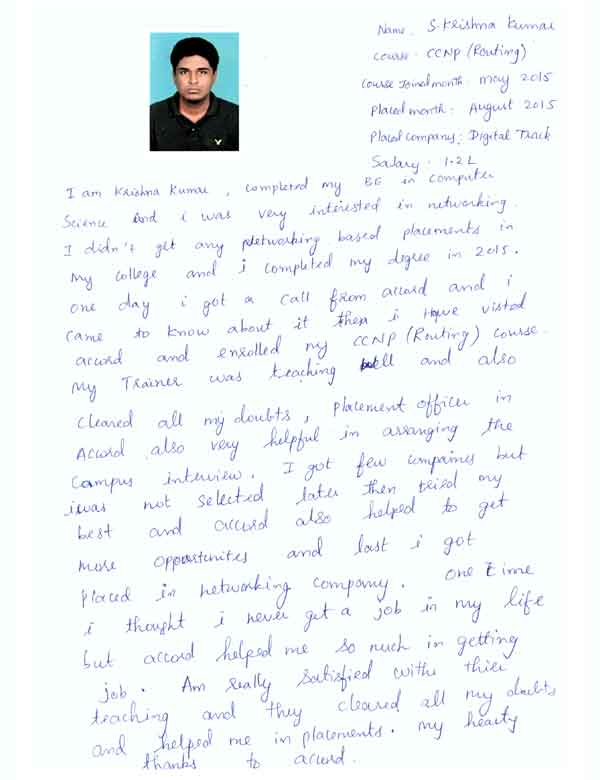 Name : S. Krishna Kumar
Course : CCNP (Routing)
Course Joined month : may 2015
Placed month : August 2015
Placed company : Digital Track
Salary : 1.2 L
I am Krishna Kumar, completed my BE in computer
Science and i was very interested in networking.
I didn't get any networking based placements in
my college and i completed my degree in 2015.
one day i got a call from accord and i
came to know about it then i have visted
accord and enrolled my CCNP (Routing) course.
my Trainer was teaching well and also
cleared all my doubts, placement officer in
Accord also very helpful in arranging the
campus interview. I got few compaines but
i was not selected later then tried my
best and accord also helped to get
more opportunites and last i got
placed in networking company. one time
i thought i never get a job in my life
but accord helped me so much in getting
job. Am really satisfied withe thier
teaching and they cleared all my doubts
and helped me in placements. my hearty
thanks to accord.